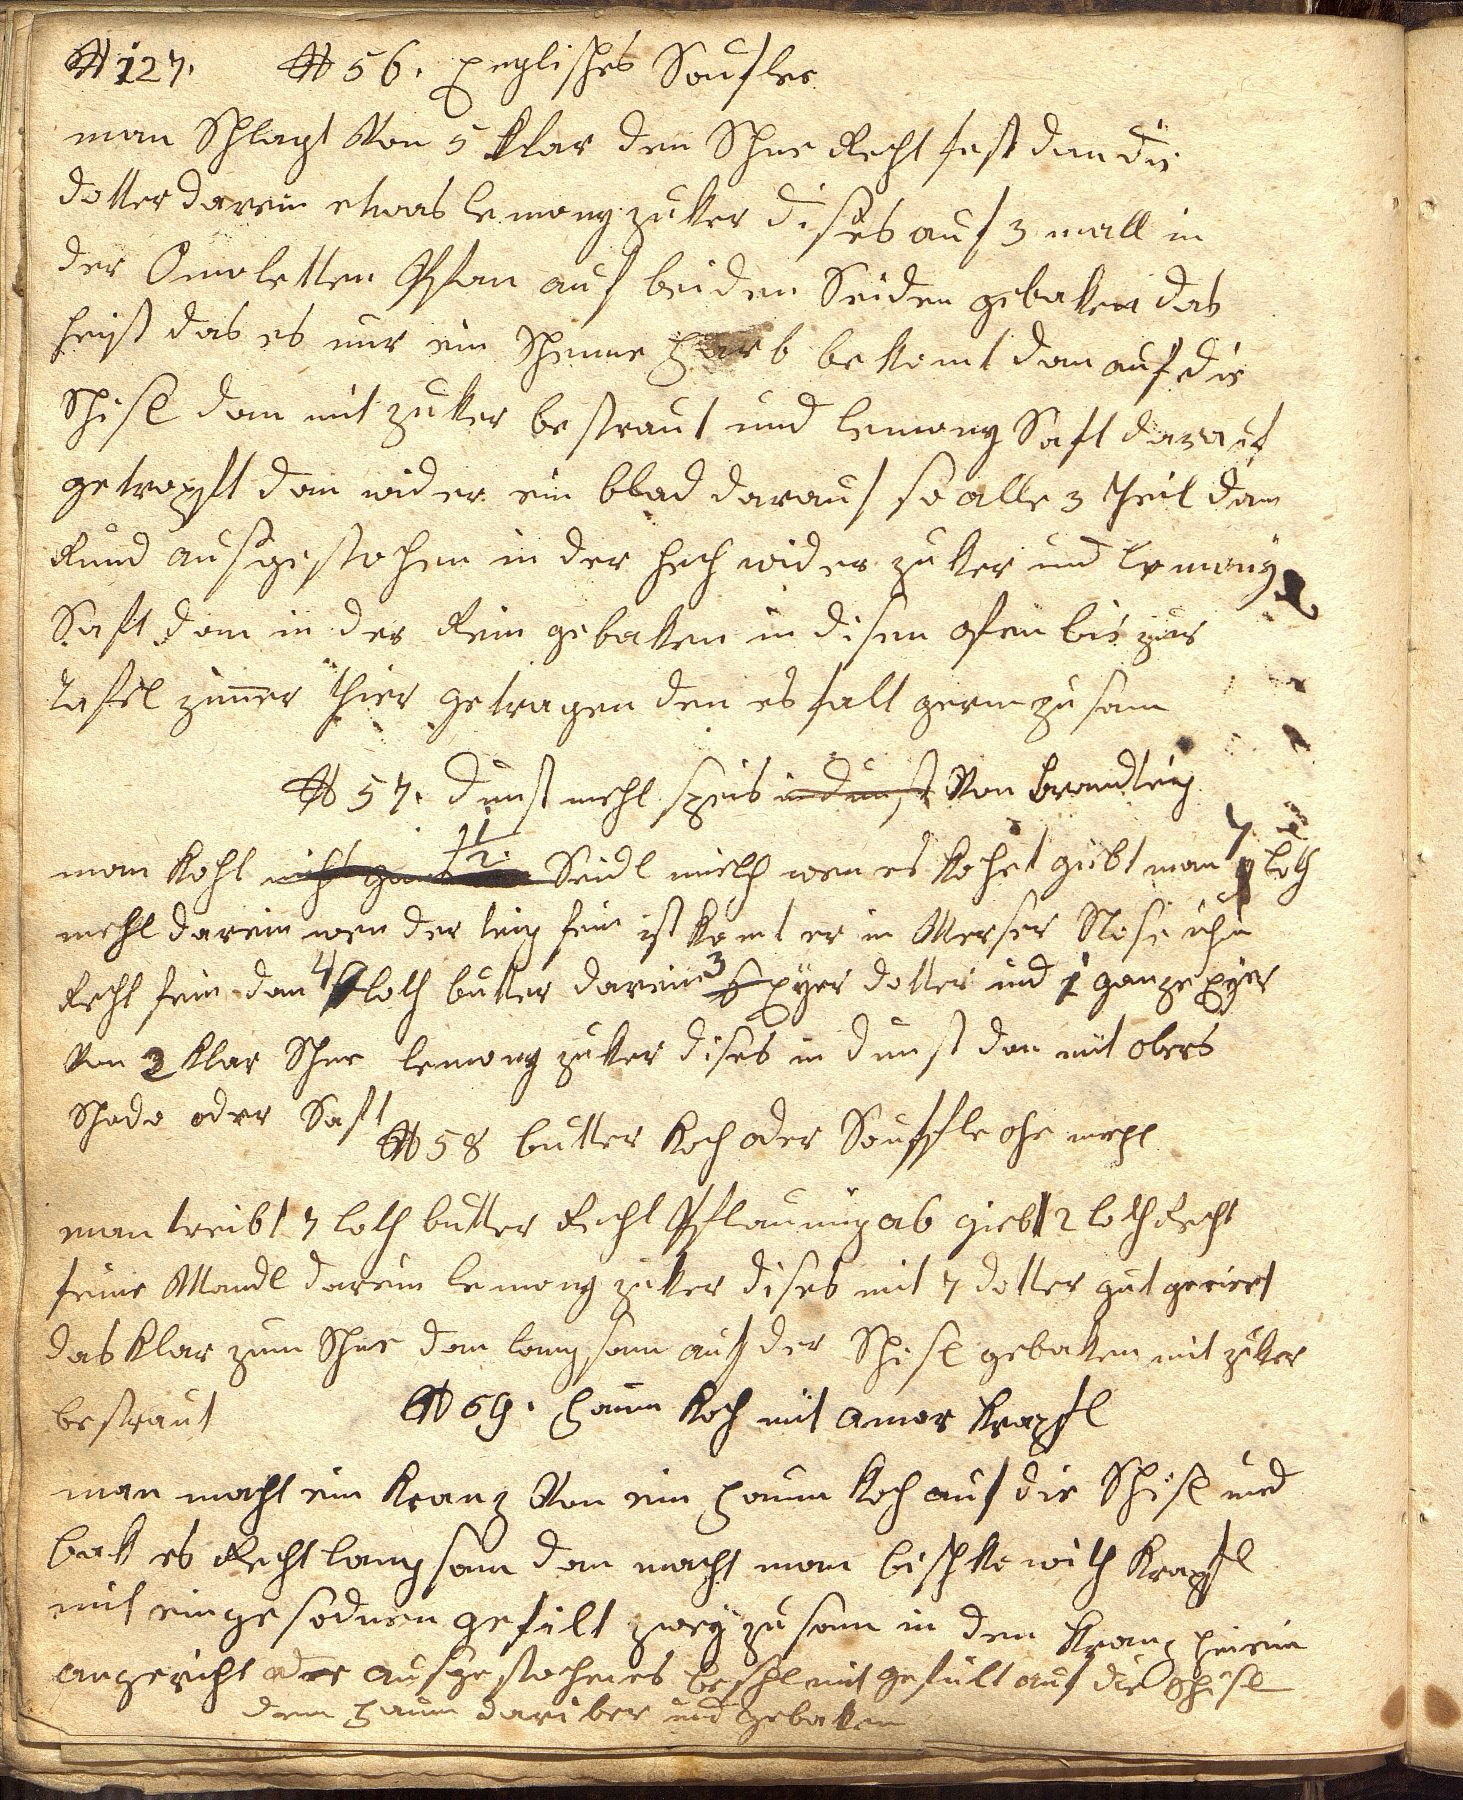 # 127. # 56. Englisches Soufler
man Schlagt Von 5 Klar den Schne Recht fest dan die
dotter darein etwas lemony zuker dises auf 3 mall in
der Omoletten Pfan auf beiden Seiden gebaken das
heist das es nur ein Schenne Harb bekomt dan auf die
Schisl dan mit zuker bestraut und lemony Saft darauf
getropft dan wider ein blad darauf so alle 3 theil dan
Rund ausgestochen in der hech wider zuker und lemony
Saft dan in der Rein gebaken in disen ofen bis zur
tafel zimer thier getragen den es falt gern zusam
# 57. dunst mehl speis in dunst Von brandteig
man Koht nicht gar 1/2 Seidl milch wen es Kohet giebt man 7 loth
mehl darein wen der teig fein ist Komt er in Merser Stose ihn
Recht fein dan 4 loth butter darein 3 Eyer dotter und 1 ganze Eyer
Von 2 Klar Schne lemony zuker dises in dunst dan mit obers
Schodo oder Saft
# 58 butter Koch oder Souffle ohe mehl
man treibt 7 loth butter Recht Pflaumig ab giebt 2 loth Recht
feine Mandl darein lemony zuker dises mit 7 dotter gut geriert
das Klar zum Schne dan langsam auf der Schisl gebaken mit zuker
bestraut
# 59. Haum Koch mit amor Krapfl
man macht ein Kranz Von ein Haum Koch auf die Schisl und
bak es Recht langsam dan macht man bischkewith Krapfl
mit eingesodnen gefilt zwey zusam in den Kranz hinein
angericht oder ausgestochenes mit gefült auf die Schisl
dem Haum dariber und gebaken